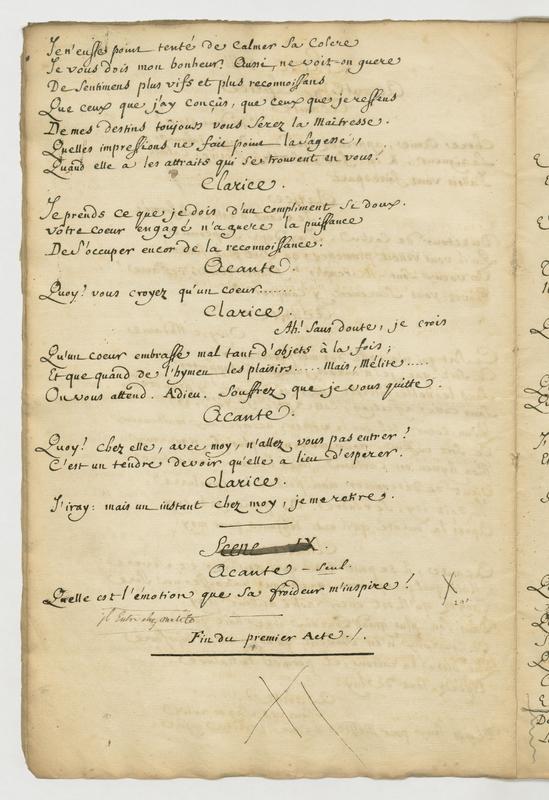 Je n'eusse point tenté de Calmer Sa Colere
Je vous dois mon bonheur. Aussi, ne voit-on guere
De Sentimens plus vifs et plus reconnoissans
Que ceux que j'ay conçûs, que ceux que je ressens
De mes destins toûjours vous Serez la Maitresse.
Quelles impressions ne fait point la Sagesse,
Quand elle a les attraits qui Se trouvent en vous.
Clarice.
Je prends ce que je dois d'un Compliment Si doux.
votre Coeur engagé n'a guere la puissance
De S'occuper encor de la reconnoissance.
Acante.
Quoy! vous croyez qu'un coeur.......
Clarice.
Ah! Sans doute, je crois
Qu'un Coeur embrasse mal tant d'objets à la fois;
Et que quand de l'hymen les plaisirs..... Mais, Mélite.....
On vous attend. Adieu. Souffrez que je vous quitte.
Acante.
Quoy! Chez elle, avec moy, n'allez vous pas entrer?
C'est un tendre devoir qu'elle a lieu d'esperer.
Clarice.
J'iray: mais un instant Chez moy, je me retire.
Scene IX.
Acante - Seul.
Quelle est l'émotion que Sa froideur m'inspire!
il Entre chez melite
Fin du premier Acte./.